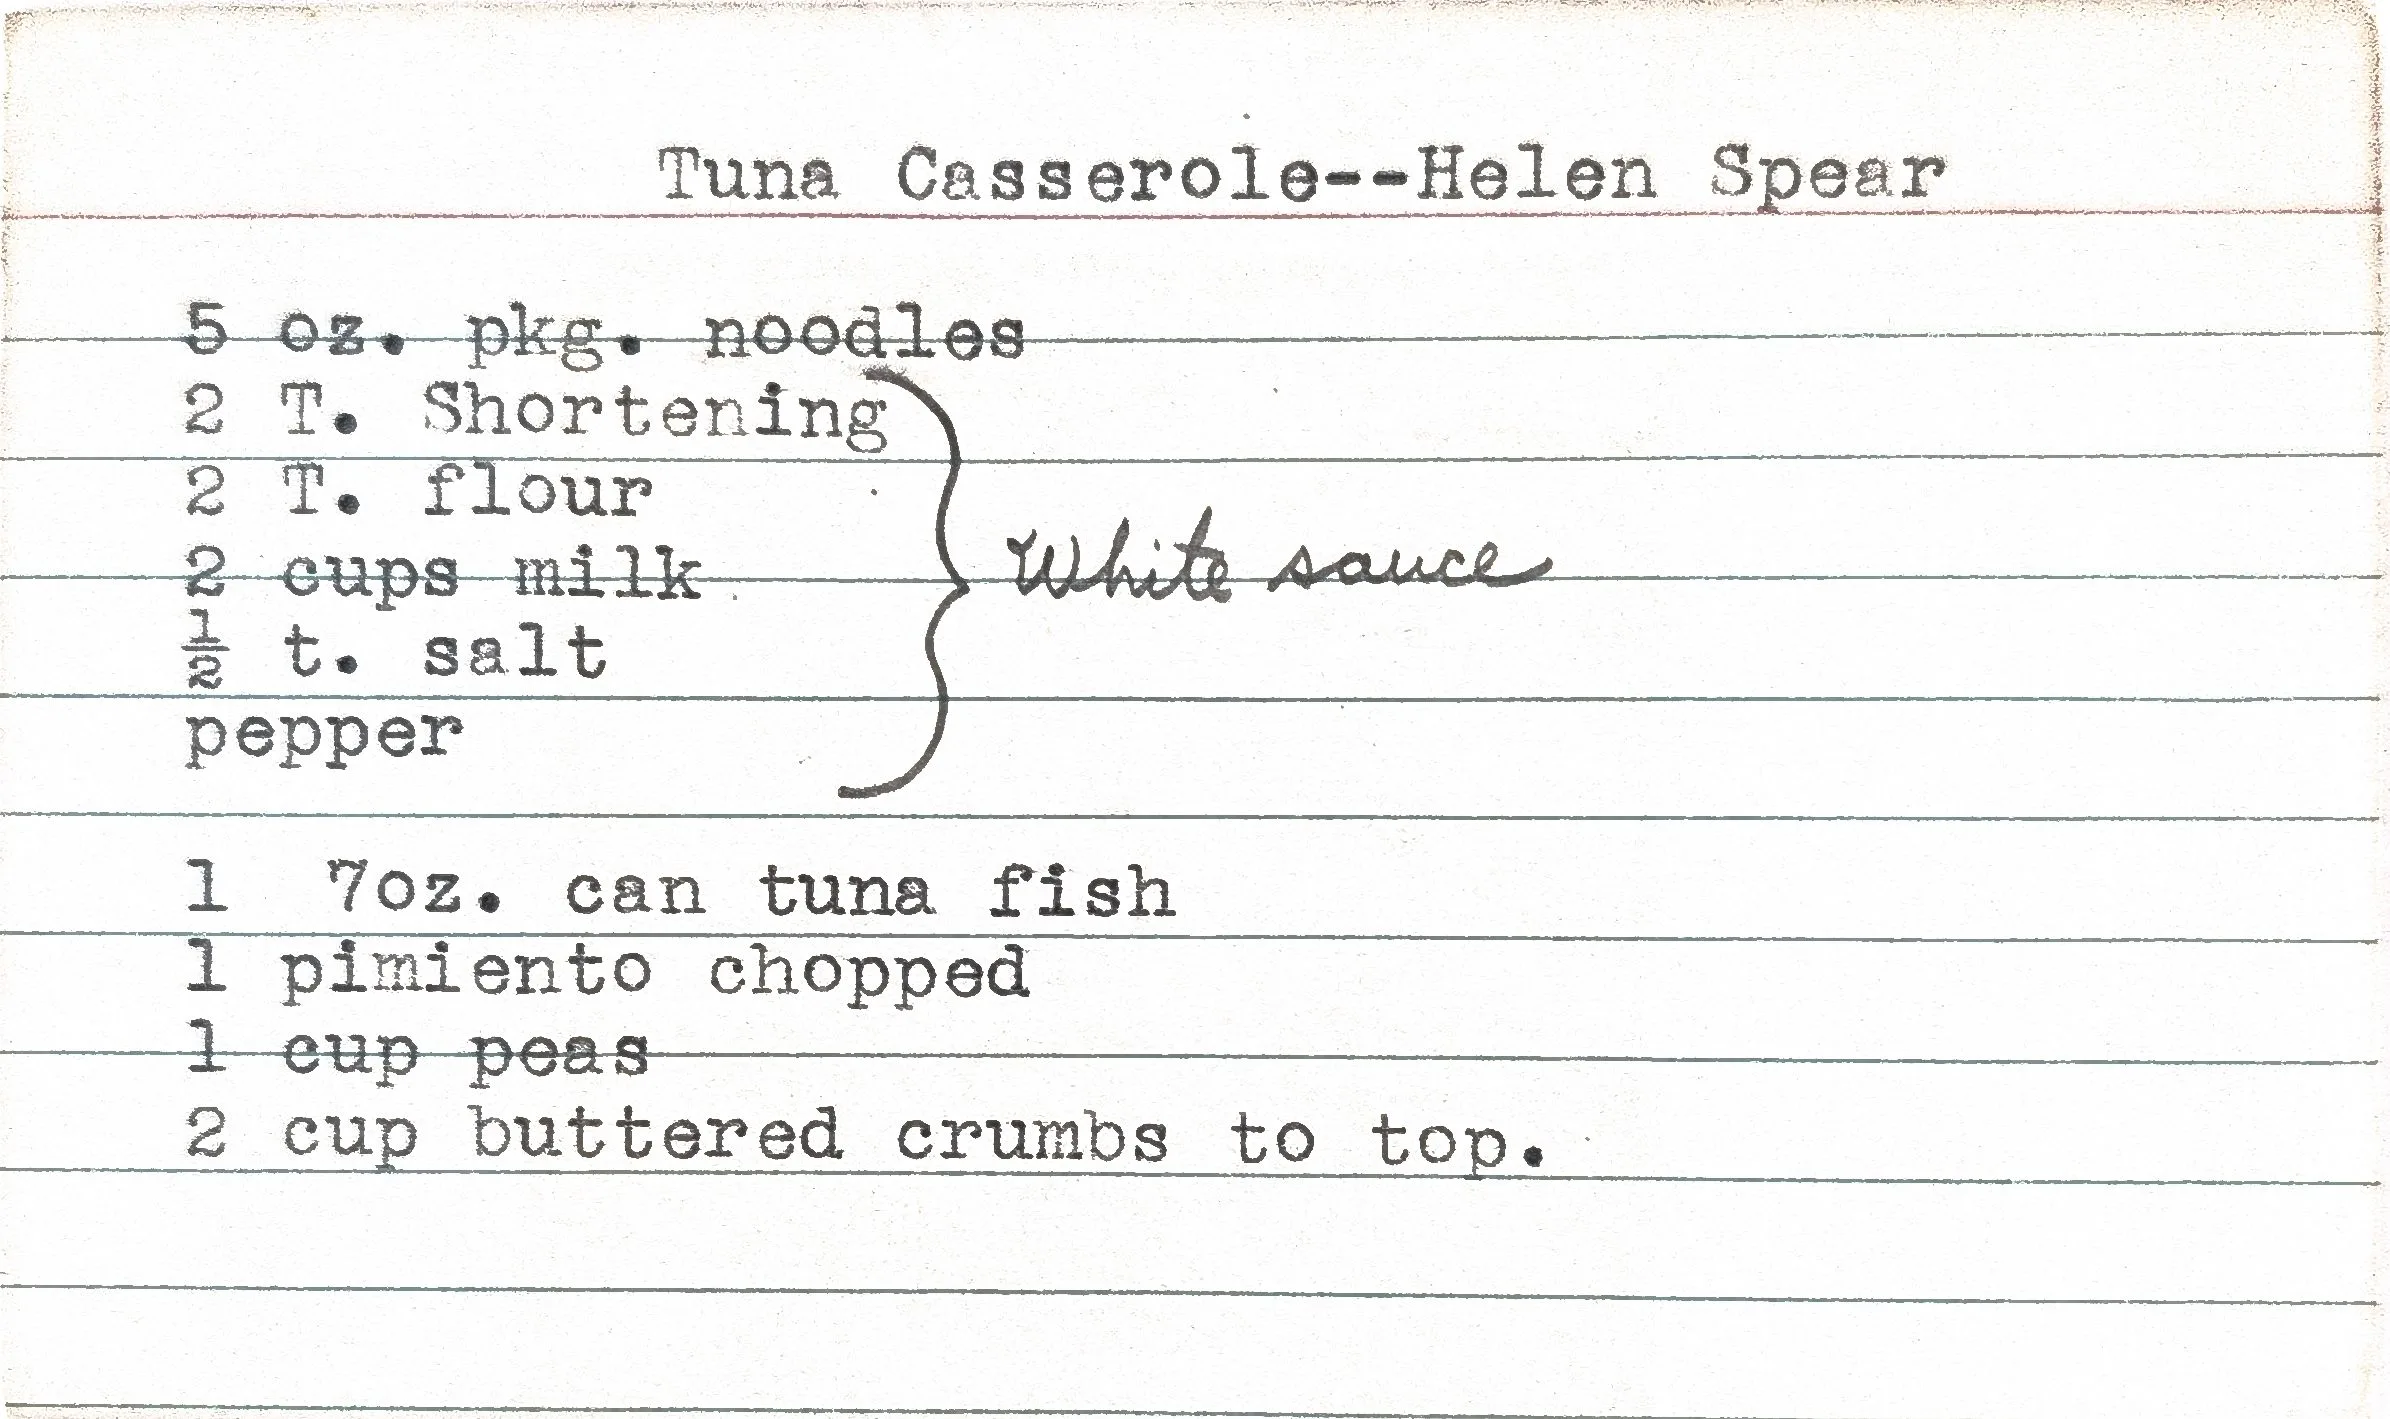 Tuna Casserole--Helen Spear
5 oz. pkg. noodles
2 T. Shortening
2 T. flour
2 cups milk
½ t. salt
pepper
White sauce
1 7oz. can tuna fish
1 pimiento chopped
1 cup peas
2 cup buttered crumbs to top.